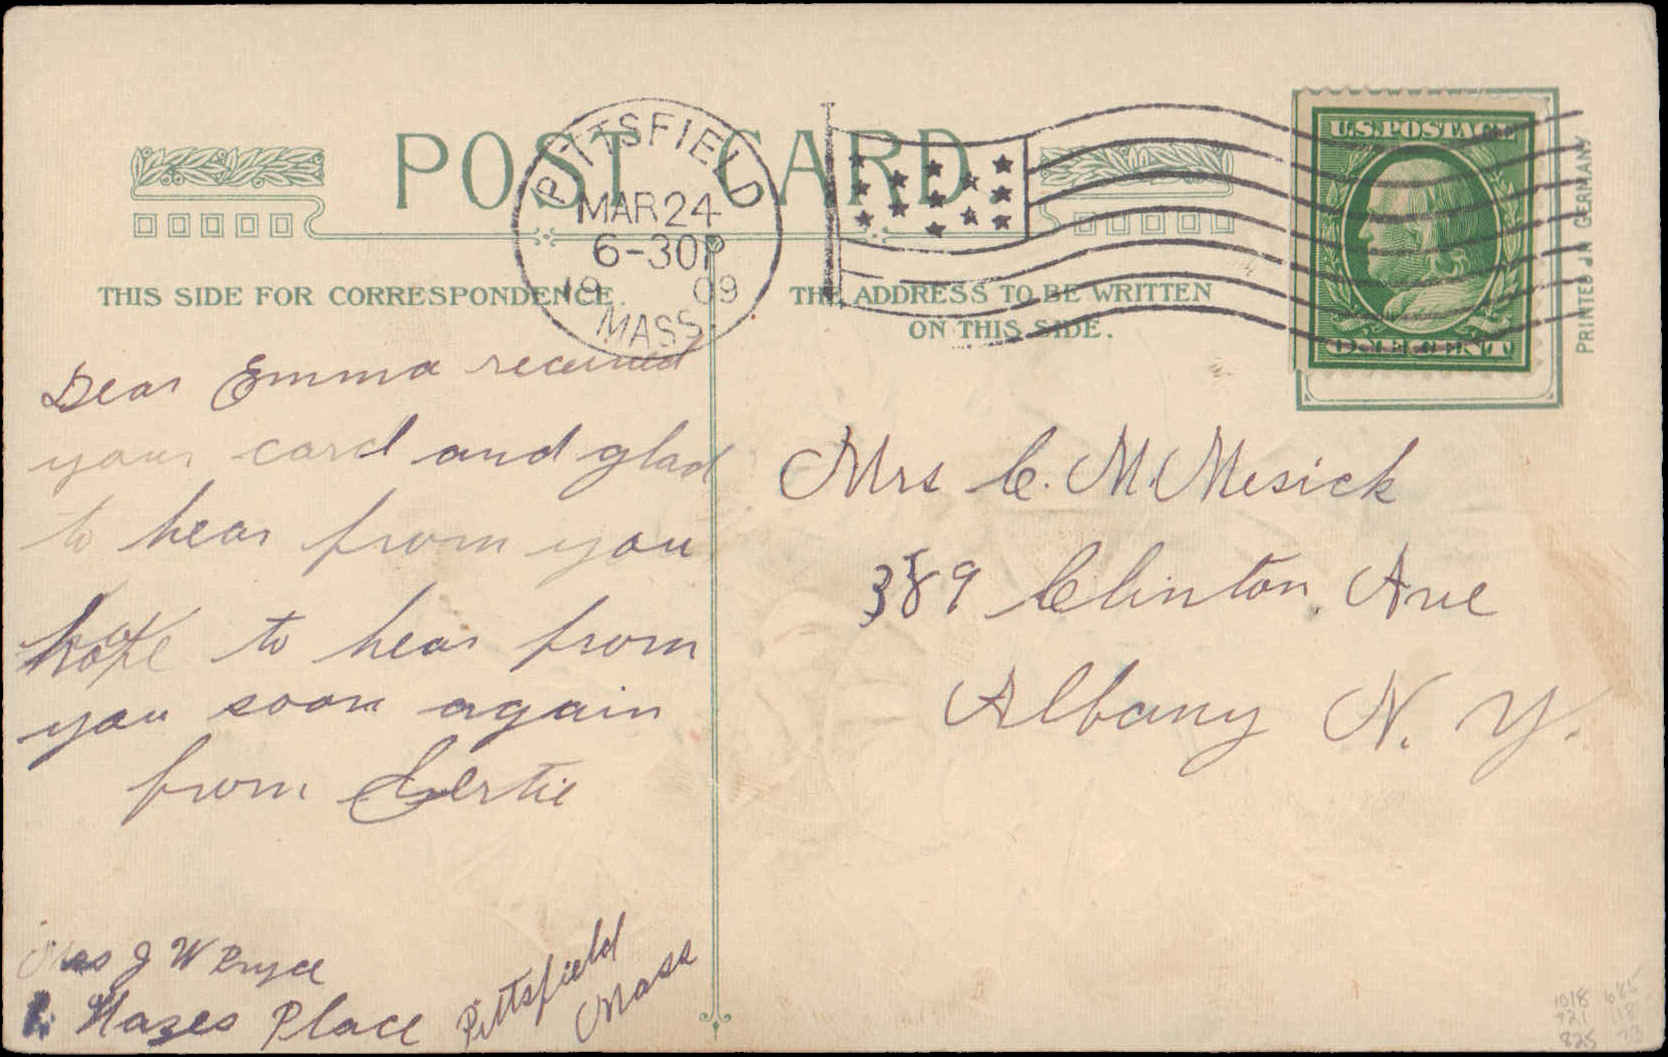 POST CARD
THIS SIDE FOR CORRESPONDENCE.
THE ADDRESS TO BE WRITTEN
ON THIS SIDE.
PITTSFIELD
MAR 24
6-30P
1909
MASS.
U.S. POSTAGE
ONE CENT
PRINTED IN GERMANY
Dear Emma received
your card and glad
to hear from you
hope to hear from
you soon again
from Gertie
Mrs J W Bryce
Place
Pittsfield
Mass
Mrs C. M. Mesick
389 Clinton. Ave
Albany N. Y.
1018 685
721 118
825